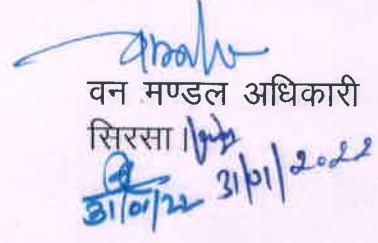 वन मण्डल अधिकारी
सिरसा।
31/01/22 31/01/2022